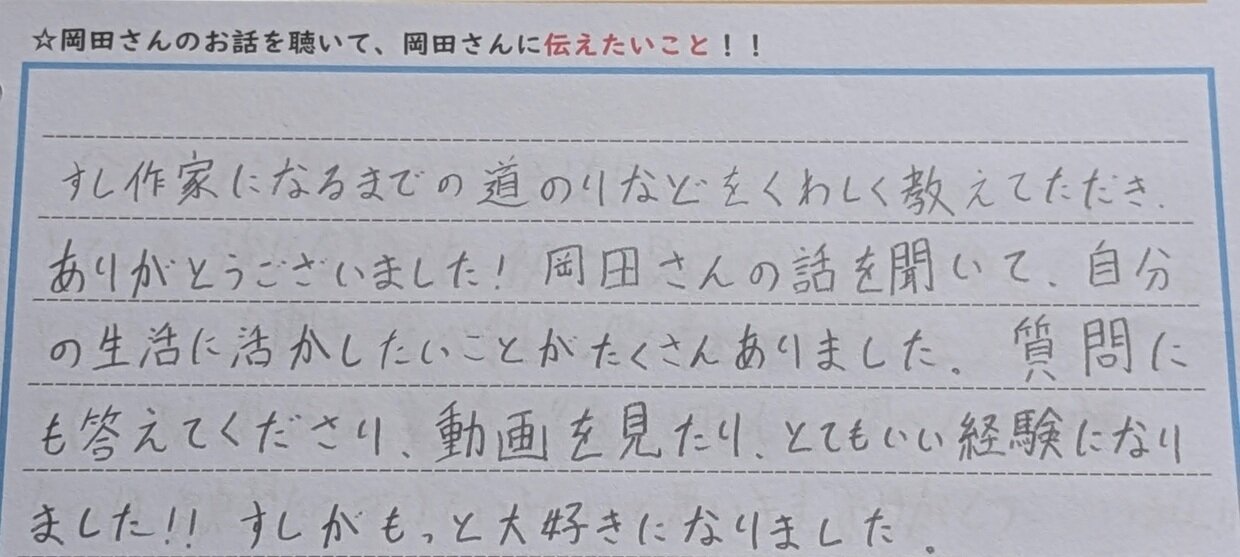 ☆岡田さんのお話を聴いて、岡田さんに伝えたいこと！！
すし作家になるまでの道のりなどをくわしく教えてただき、
ありがとうございました！岡田さんの話を聞いて、自分
の生活に活かしたいことがたくさんありました。質問に
も答えてくださり、動画を見たり、とてもいい経験になり
ました!! すしがもっと大好きになりました。